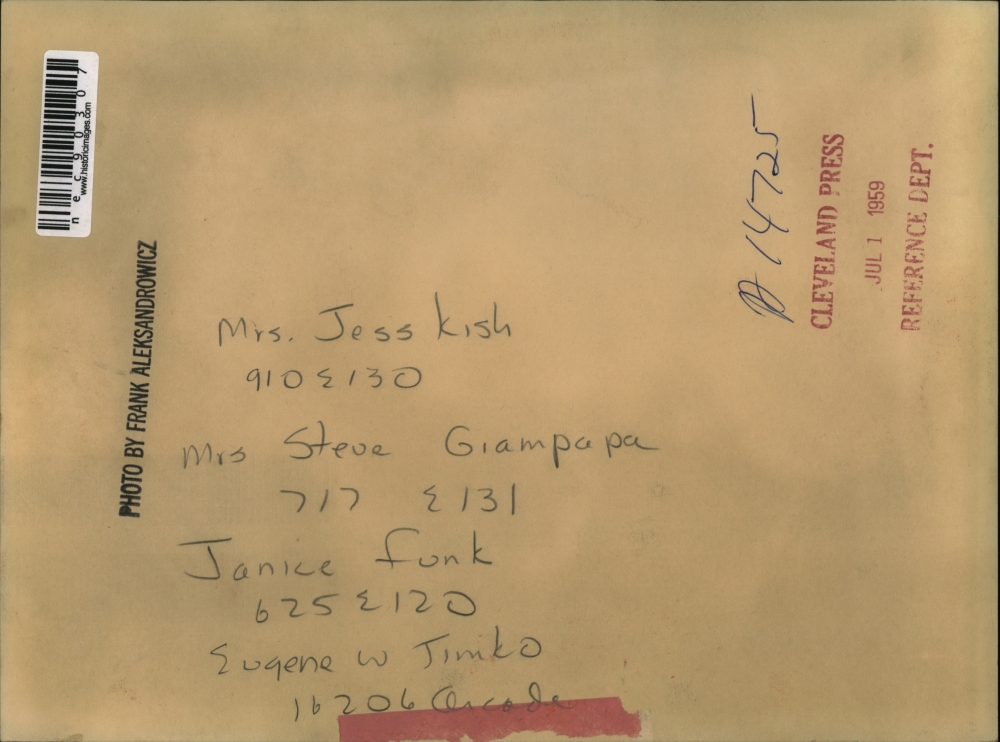 nec90307
www.historicimages.com
PHOTO BY FRANK ALEKSANDROWICZ
Mrs. Jess Kish
910 E 130
Mrs Steve Giampapa
717 E 131
Janice Funk
625 E 120
Eugene W Timko
16206 Arcade
A 14725
CLEVELAND PRESS
JUL 1 1959
REFERENCE DEPT.